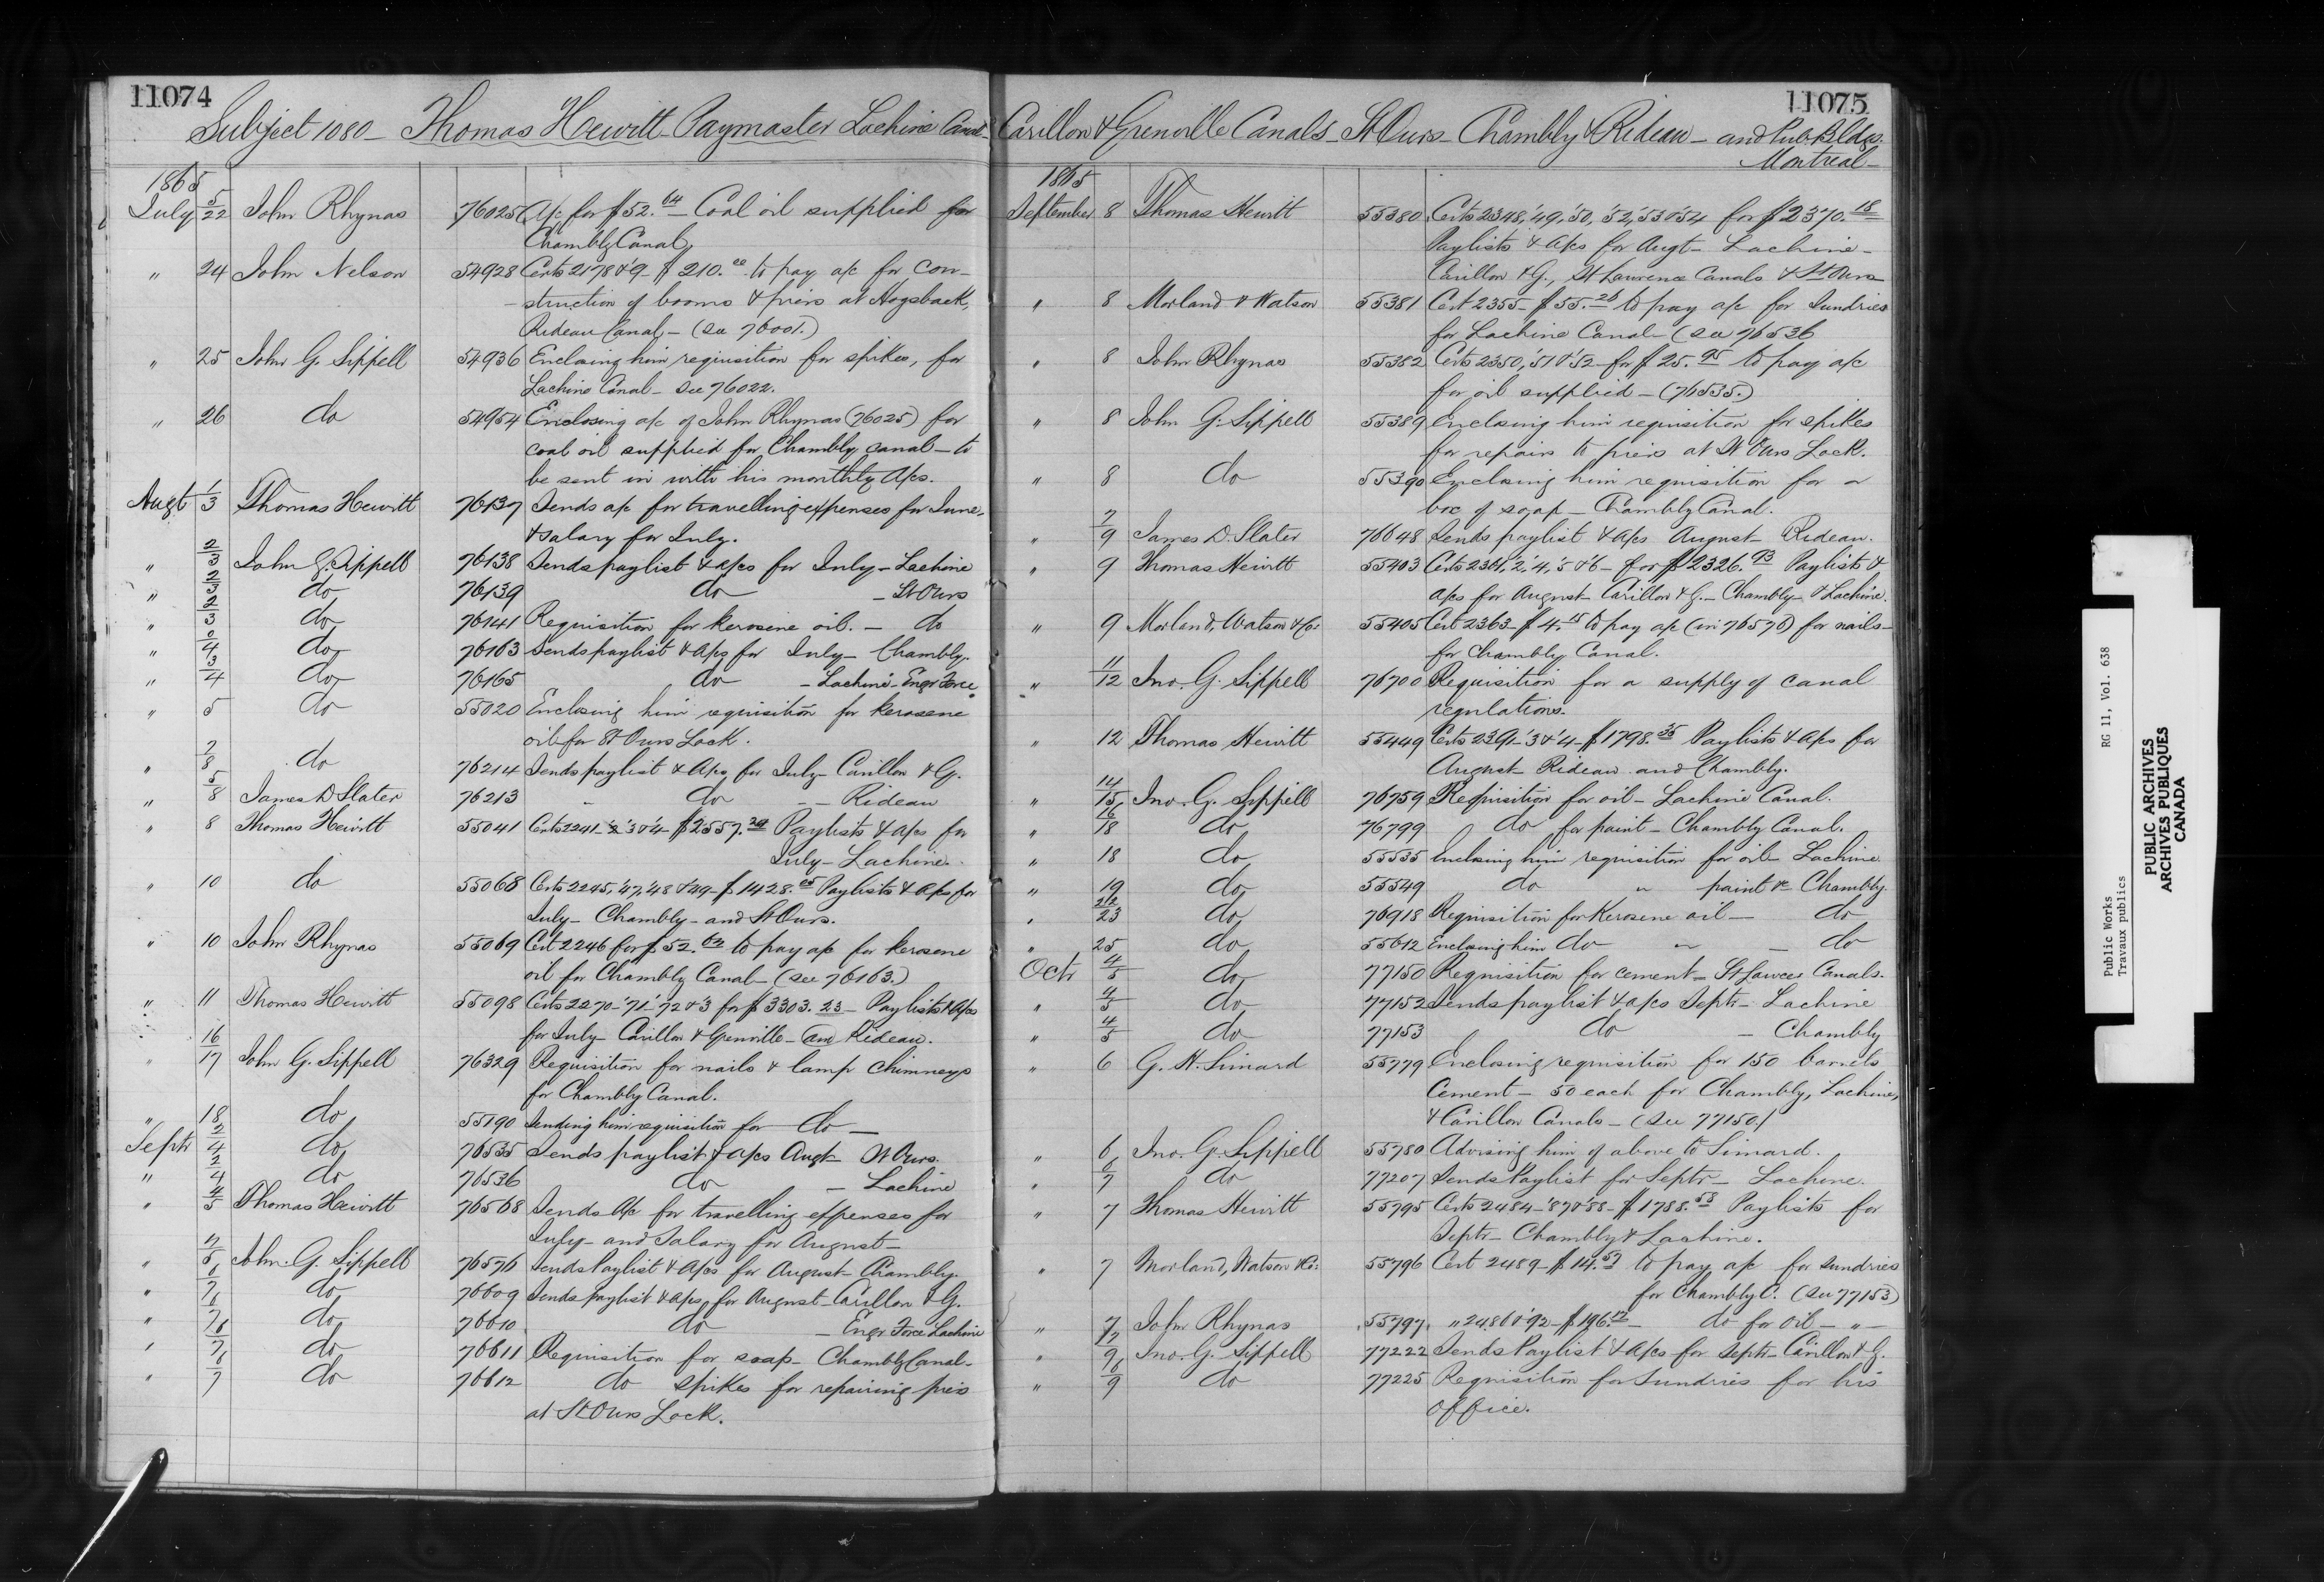 11074
Subject 1080 - Thomas Hewitt - Paymaster Lachine Canal -
1865
July 5/22 John Rhynas 76025 A/c for $52.64 - Coal oil supplied for
Chambly Canal,
" 24 John Nelson 54928 Certs 2178 & 9 - $210.00 to pay a/c for con-
struction of booms & piers at Hogsback,
Rideau Canal - (see 76001.)
" 25 John G. Sippell 54936 Enclosing him requisition for spikes, for
Lachine Canal - See 76022.
" 26 do 54954 Enclosing a/c of John Rhynas (76025) for
coal oil supplied for Chambly canal - to
be sent in with his monthly A/cs.
Augt 1/3 Thomas Hewitt 76137 Sends a/c for travelling expenses for June,
& salary for July.
" 2/3 John G. Sippell 76138 Sends paylist & a/cs for July - Lachine
" 2/3 do 76139 do - St Ours
" 2/3 do 76141 Requisition for kerosene oil. - do
" 2/4 do 76163 Sends paylist & a/cs for July - Chambly.
" 3/4 do 76165 do - Lachine - Engr Force
" 5 do 55020 Enclosing him requisition for kerosene
oil for St Ours Lock.
" 7/8 do 76214 Sends paylist & A/cs for July - Carillon & G.
" 5/8 James D Slater 76213 - do - - Rideau
" 8 Thomas Hewitt 55041 Certs 2241 '2 '3 & '4 - $2557.29 Paylists & a/cs for
July - Lachine.
" 10 do 55068 Certs 2245, '47, '48 & 49 - $1428.05 Paylists & a/cs for
July - Chambly - and St Ours.
" 10 John Rhynas 55069 Cert 2246 for $52.63 to pay a/c for kerosene
oil for Chambly Canal - (see 76163.)
" 11 Thomas Hewitt 55098 Certs 2270 - '71 - '72 & 3 for $3303.23 - Paylists & A/cs
for July - Carillon & Grenville - and Rideau.
" 16/17 John G. Sippell 76329 Requisition for nails & lamp chimneys
for Chambly Canal.
" 18 do 55190 Sending him requisition for do -
Septr 2/4 do 76535 Sends paylist & a/cs Augt St Ours.
" 2/4 do 76536 do - Lachine
" 4/5 Thomas Hewitt 76568 Sends A/c for travelling expenses for
July - and Salary for August -
" 4/5 John G. Sippell 76576 Sends Paylist & A/cs for August - Chambly.
" 6/7 do 76609 Sends paylist & a/cs for August - Carillon & G.
" 6/7 do 76610 do - Engr Force Lachine
" 6/7 do 76611 Requisition for soap - Chambly Canal -
" 6/7 do 76612 do spikes for repairing piers
at St Ours Lock.
11075
Carillon & Grenville Canals - St Ours - Chambly & Rideau - and Pub. Bldgs.
Montreal -
1865
September 8 Thomas Hewitt 55380 Certs 2348, '49, '50, '52, '53 & '54 for $2370.18
Paylists & A/cs for Augt - Lachine -
Carillon & G., St Lawrence Canals & St Ours
" 8 Morland & Watson 55381 Cert 2355 - $55.26 to pay a/c for Sundries
for Lachine Canal - (see 76536
" 8 John Rhynas 55382 Certs 2350, '51 & '52 - for $25.95 to pay a/c
for oil supplied - (76535.)
" 8 John G. Sippell 55389 Enclosing him requisition for spikes
for repairs to piers at St Ours Lock.
" 8 do 55390 Enclosing him requisition for a
box of soap - Chambly Canal.
" 7/9 James D. Slater 76648 Sends paylist & a/cs August - Rideau.
" 9 Thomas Hewitt 55403 Certs 2361, '2, '4, '5 & '6 - for $2326.93 Paylists &
a/cs for August - Carillon & G. - Chambly & Lachine.
" 9 Morland, Watson & Co. 55405 Cert 2363 - $4.15 to pay a/c (in 76576) for nails -
for Chambly Canal.
" 11/12 Jno. G. Sippell 76700 Requisition for a supply of canal
regulations.
" 12 Thomas Hewitt 55449 Certs 2391 - '3 & '4 - $1798.35 Paylists & A/cs for
August - Rideau and Chambly.
" 14/15 Jno. G. Sippell 76759 Requisition for oil - Lachine Canal.
" 16/18 do 76799 do for paint - Chambly Canal.
" 18 do 55535 Enclosing him requisition for oil - Lachine
" 19 do 55549 do " paint &c Chambly
" 22/23 do 76918 Requisition for Kerosene oil - do
" 25 do 55612 Enclosing him do " - do
Octr 4/5 do 77150 Requisition for cement - St Lawce Canals.
" 4/5 do 77152 Sends paylist & a/cs Septr - Lachine
" 4/5 do 77153 do - Chambly
" 6 G. H. Simard 55779 Enclosing requisition for 150 barrels
Cement - 50 each for Chambly, Lachine,
& Carillon Canals - (see 77150.)
" 6 Jno. G. Sippell 55780 Advising him of above to Simard.
" 6/7 do 77207 Sends Paylist for Septr - Lachine.
" 7 Thomas Hewitt 55795 Certs 2484 - '87 & '88 - $1788.58 Paylists for
Septr - Chambly & Lachine.
" 7 Morland, Watson & Co: 55796 Cert 2489 - $14.57 to pay a/c for sundries
for Chambly C. (see 77153)
" 7 John Rhynas 55797 " 2486 & '92 - $196.12 - do for oil - " -
" 7/9 Jno. G. Sippell 77222 Sends Paylist & A/cs for Septr - Carillon & G.
" 6/9 do 77225 Requisition for Sundries for his
office.
Public Works RG 11, Vol. 638
Travaux publics
PUBLIC ARCHIVES
ARCHIVES PUBLIQUES
CANADA